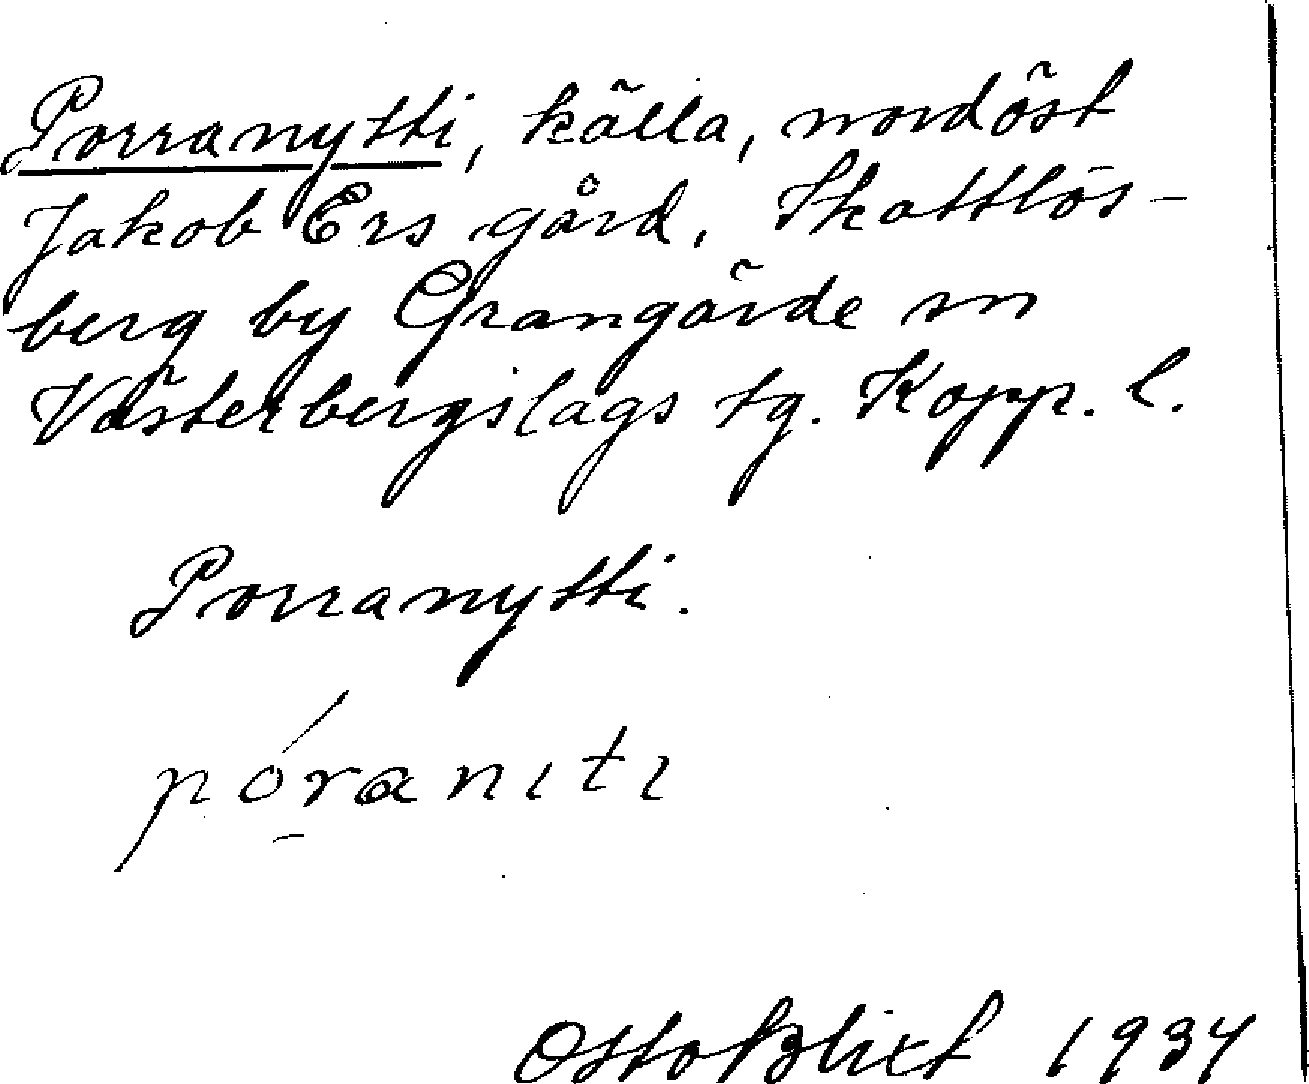 Porranytti, källa, nordöst
Jakob Ers gård, Skattlös-
berg by Grangärde sn
Västerbergslags tg. Kopp. l.
Porranytti.
póranıtı
Otto Blixt 1934